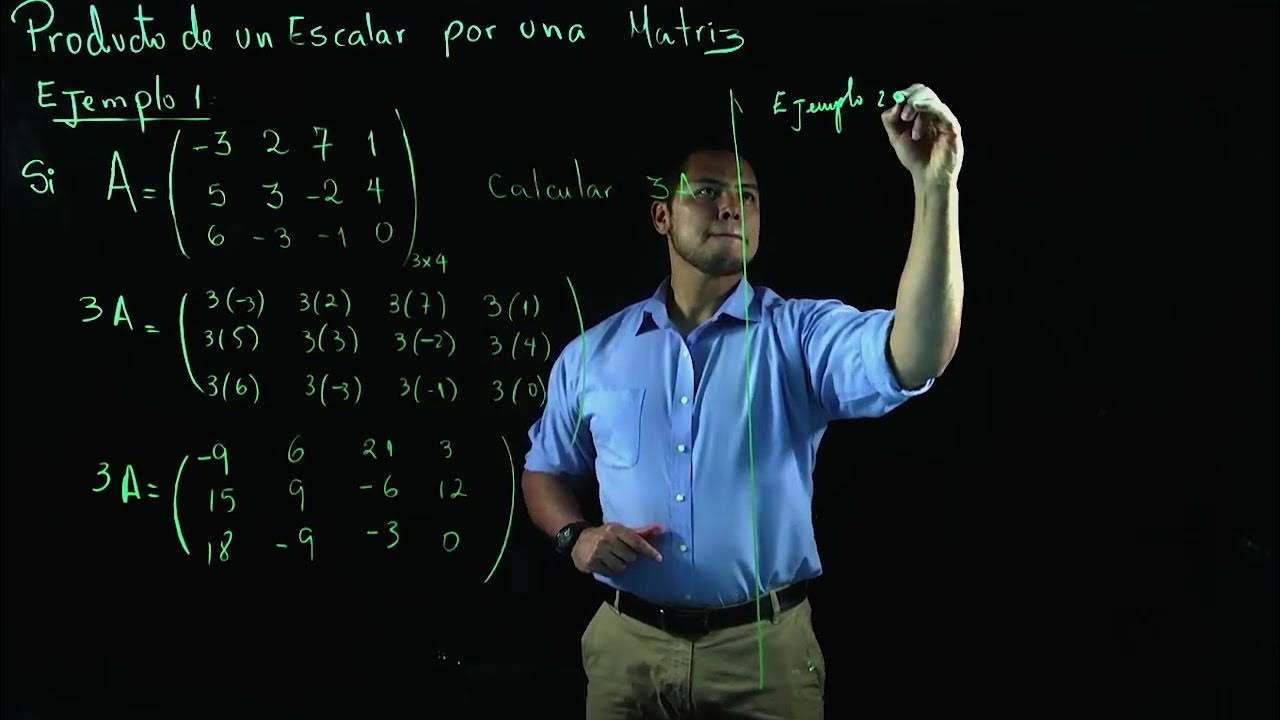 Producto de un Escalar por una Matriz
Ejemplo 1:
Si A = ( -3 2 7 1
5 3 -2 4
6 -3 -1 0 ) 3x4
Calcular 3A
3A = ( 3(-3) 3(2) 3(7) 3(1)
3(5) 3(3) 3(-2) 3(4)
3(6) 3(-3) 3(-1) 3(0) )
3A = ( -9 6 21 3
15 9 -6 12
18 -9 -3 0 )
Ejemplo 2